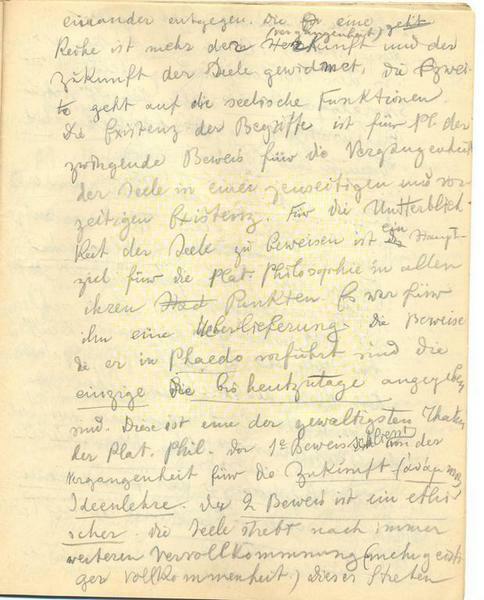 einander entgegen. Die eine geht
(Vergangenheit)
Reihe ist mehr der Herkunft und der
Zukunft der Seele gewidmet, die Zwei-
te geht auf die seelische Funktionen.
Die Existenz der Begriffe ist für Pl. der
zwingende Beweis für die Vergangenheit
der Seele in einer jenseitigen und vor-
zeitigen Existenz. Für die Unsterblich-
keit der Seele zu beweisen ist ein Haupt-
ziel für die Plat. Philosophie in allen
ihren Punkten. Es war für
ihn eine Ueberlieferung. Die Beweise
die er in Phaedo vorführt sind die
einzige die bis heutzutage angegeben
sind. Diese ist eine der gewaltigsten Thaten
der Plat. Phil. Der 1e Beweis von der
Vergangenheit für die Zukunft
Ideenlehre. Der 2 Beweis ist ein ethi-
scher. Die Seele strebt nach immer
weiteren Vervollkommnung
ger Vollkommenheit.) Dieses Streben